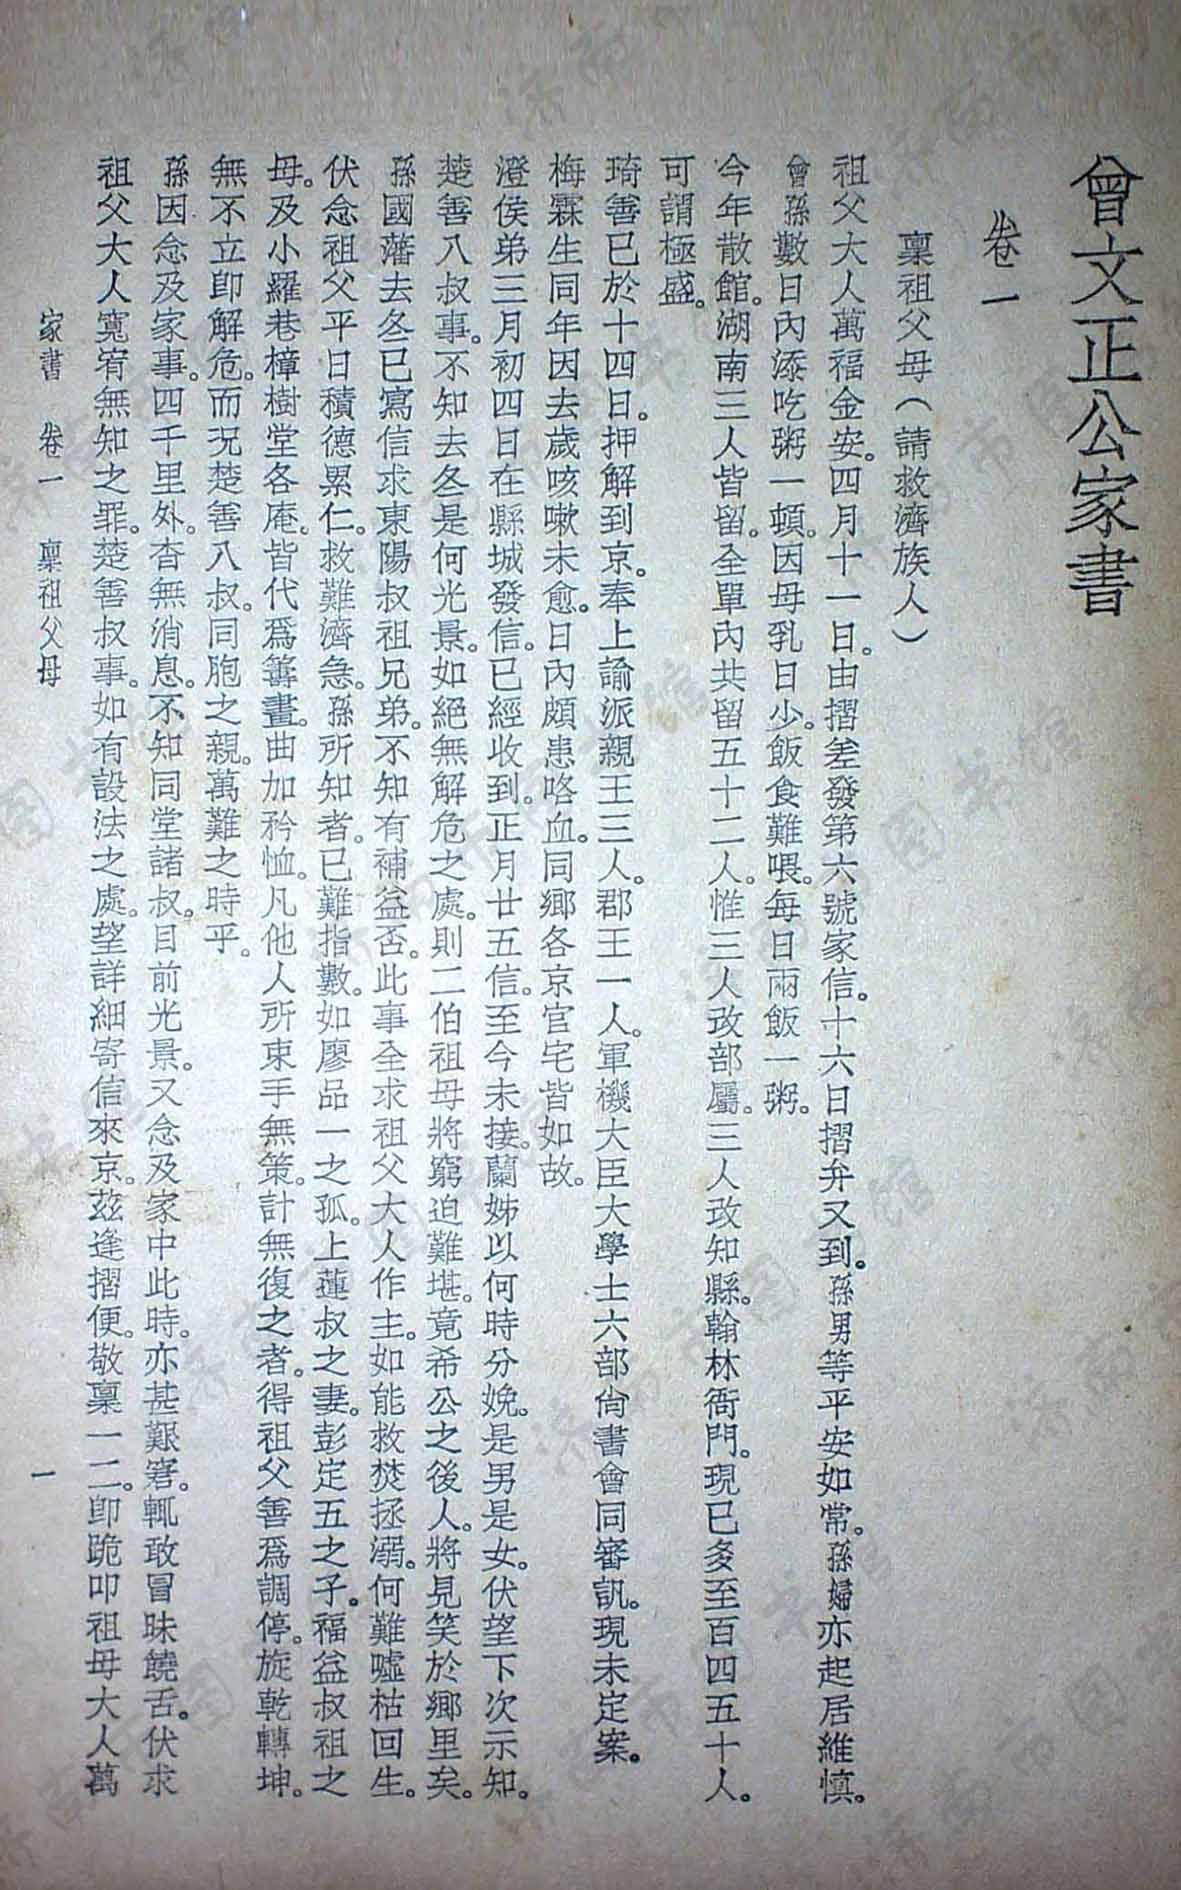 曾文正公家書
卷一
稟祖父母（請救濟族人）
祖父大人萬福金安。四月十一日。由摺差發第六號家信。十六日摺弁又到。孫男等平安如常。孫婦亦起居維慎。
曾孫數日內添吃粥一頓。因母乳日少。飯食難喂。每日兩飯一粥。
今年散館。湖南三人皆留。全單內共留五十二人。惟三人改部屬。三人改知縣。翰林衙門。現已多至百四五十人。
可謂極盛。
琦善已於十四日。押解到京。奉上諭派親王三人。郡王一人。軍機大臣大學士六部尙書會同審訊。現未定案。
梅霖生同年因去歲咳嗽未愈。日內頗患咯血。同鄉各京官宅皆如故。
澄侯弟三月初四日在縣城發信。已經收到。正月廿五信。至今未接。蘭姊以何時分娩。是男是女。伏望下次示知。
楚善八叔事。不知去冬是何光景。如絕無解危之處。則二伯祖母將窮迫難堪。竟希公之後人。將見笑於鄉里矣。
孫國藩去冬已寫信求東陽叔祖兄弟。不知有補益否。此事全求祖父大人作主。如能救焚拯溺。何難噓枯回生。
伏念祖父平日積德累仁。救難濟急。孫所知者。已難指數。如廖品一之孤。上蓮叔之妻。彭定五之子。福益叔祖之
母。及小羅巷樟樹堂各庵。皆代爲籌畫。曲加矜恤。凡他人所束手無策。計無復之者。得祖父善爲調停。旋乾轉坤。
無不立卽解危。而況楚善八叔。同胞之親。萬難之時乎。
孫因念及家事。四千里外。杳無消息。不知同堂諸叔。目前光景。又念及家中此時。亦甚艱窘。輒敢冒昧饒舌。伏求
祖父大人寬宥無知之罪。楚善叔事。如有設法之處。望詳細寄信來京。茲逢摺便。敬稟一二。卽跪叩祖母大人萬
家書　卷一　稟祖父母　一